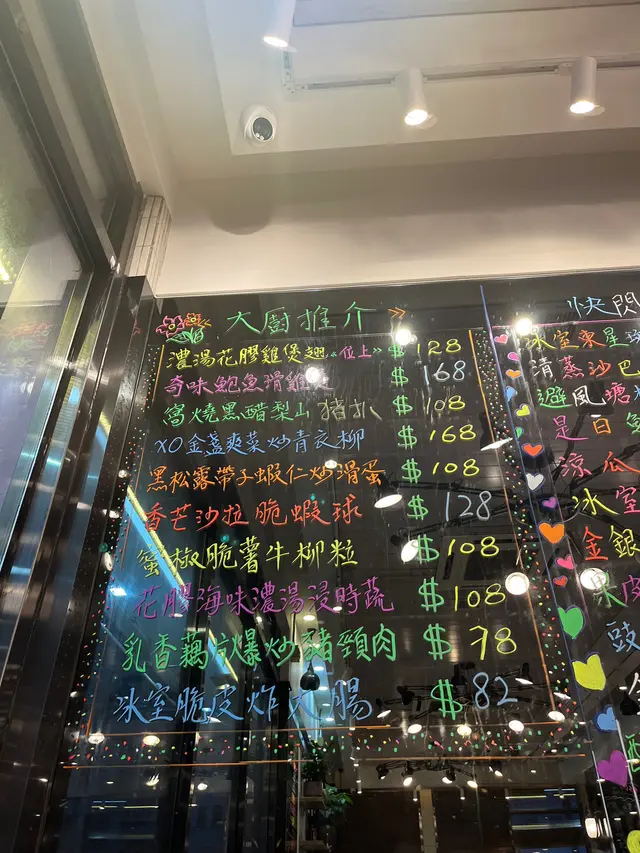 大廚推介
濃湯花膠雞煲翅《位上》 $ 128
奇味鮑魚滑雞 $ 168
窩燒黑醋梨山豬扒 $ 108
XO金盞爽菜炒青衣柳 $ 168
黑松露帶子蝦仁炒滑蛋 $ 108
香芒沙拉脆蝦球 $ 128
蜜椒脆薯牛柳粒 $ 108
花膠海味濃湯浸時蔬 $ 108
乳香藕片爆炒豬頸肉 $ 78
冰室脆皮炸大腸 $ 82
快閃
冰室東星
清蒸沙巴
避風塘
是日
涼瓜
冰室
金銀
皮
豉